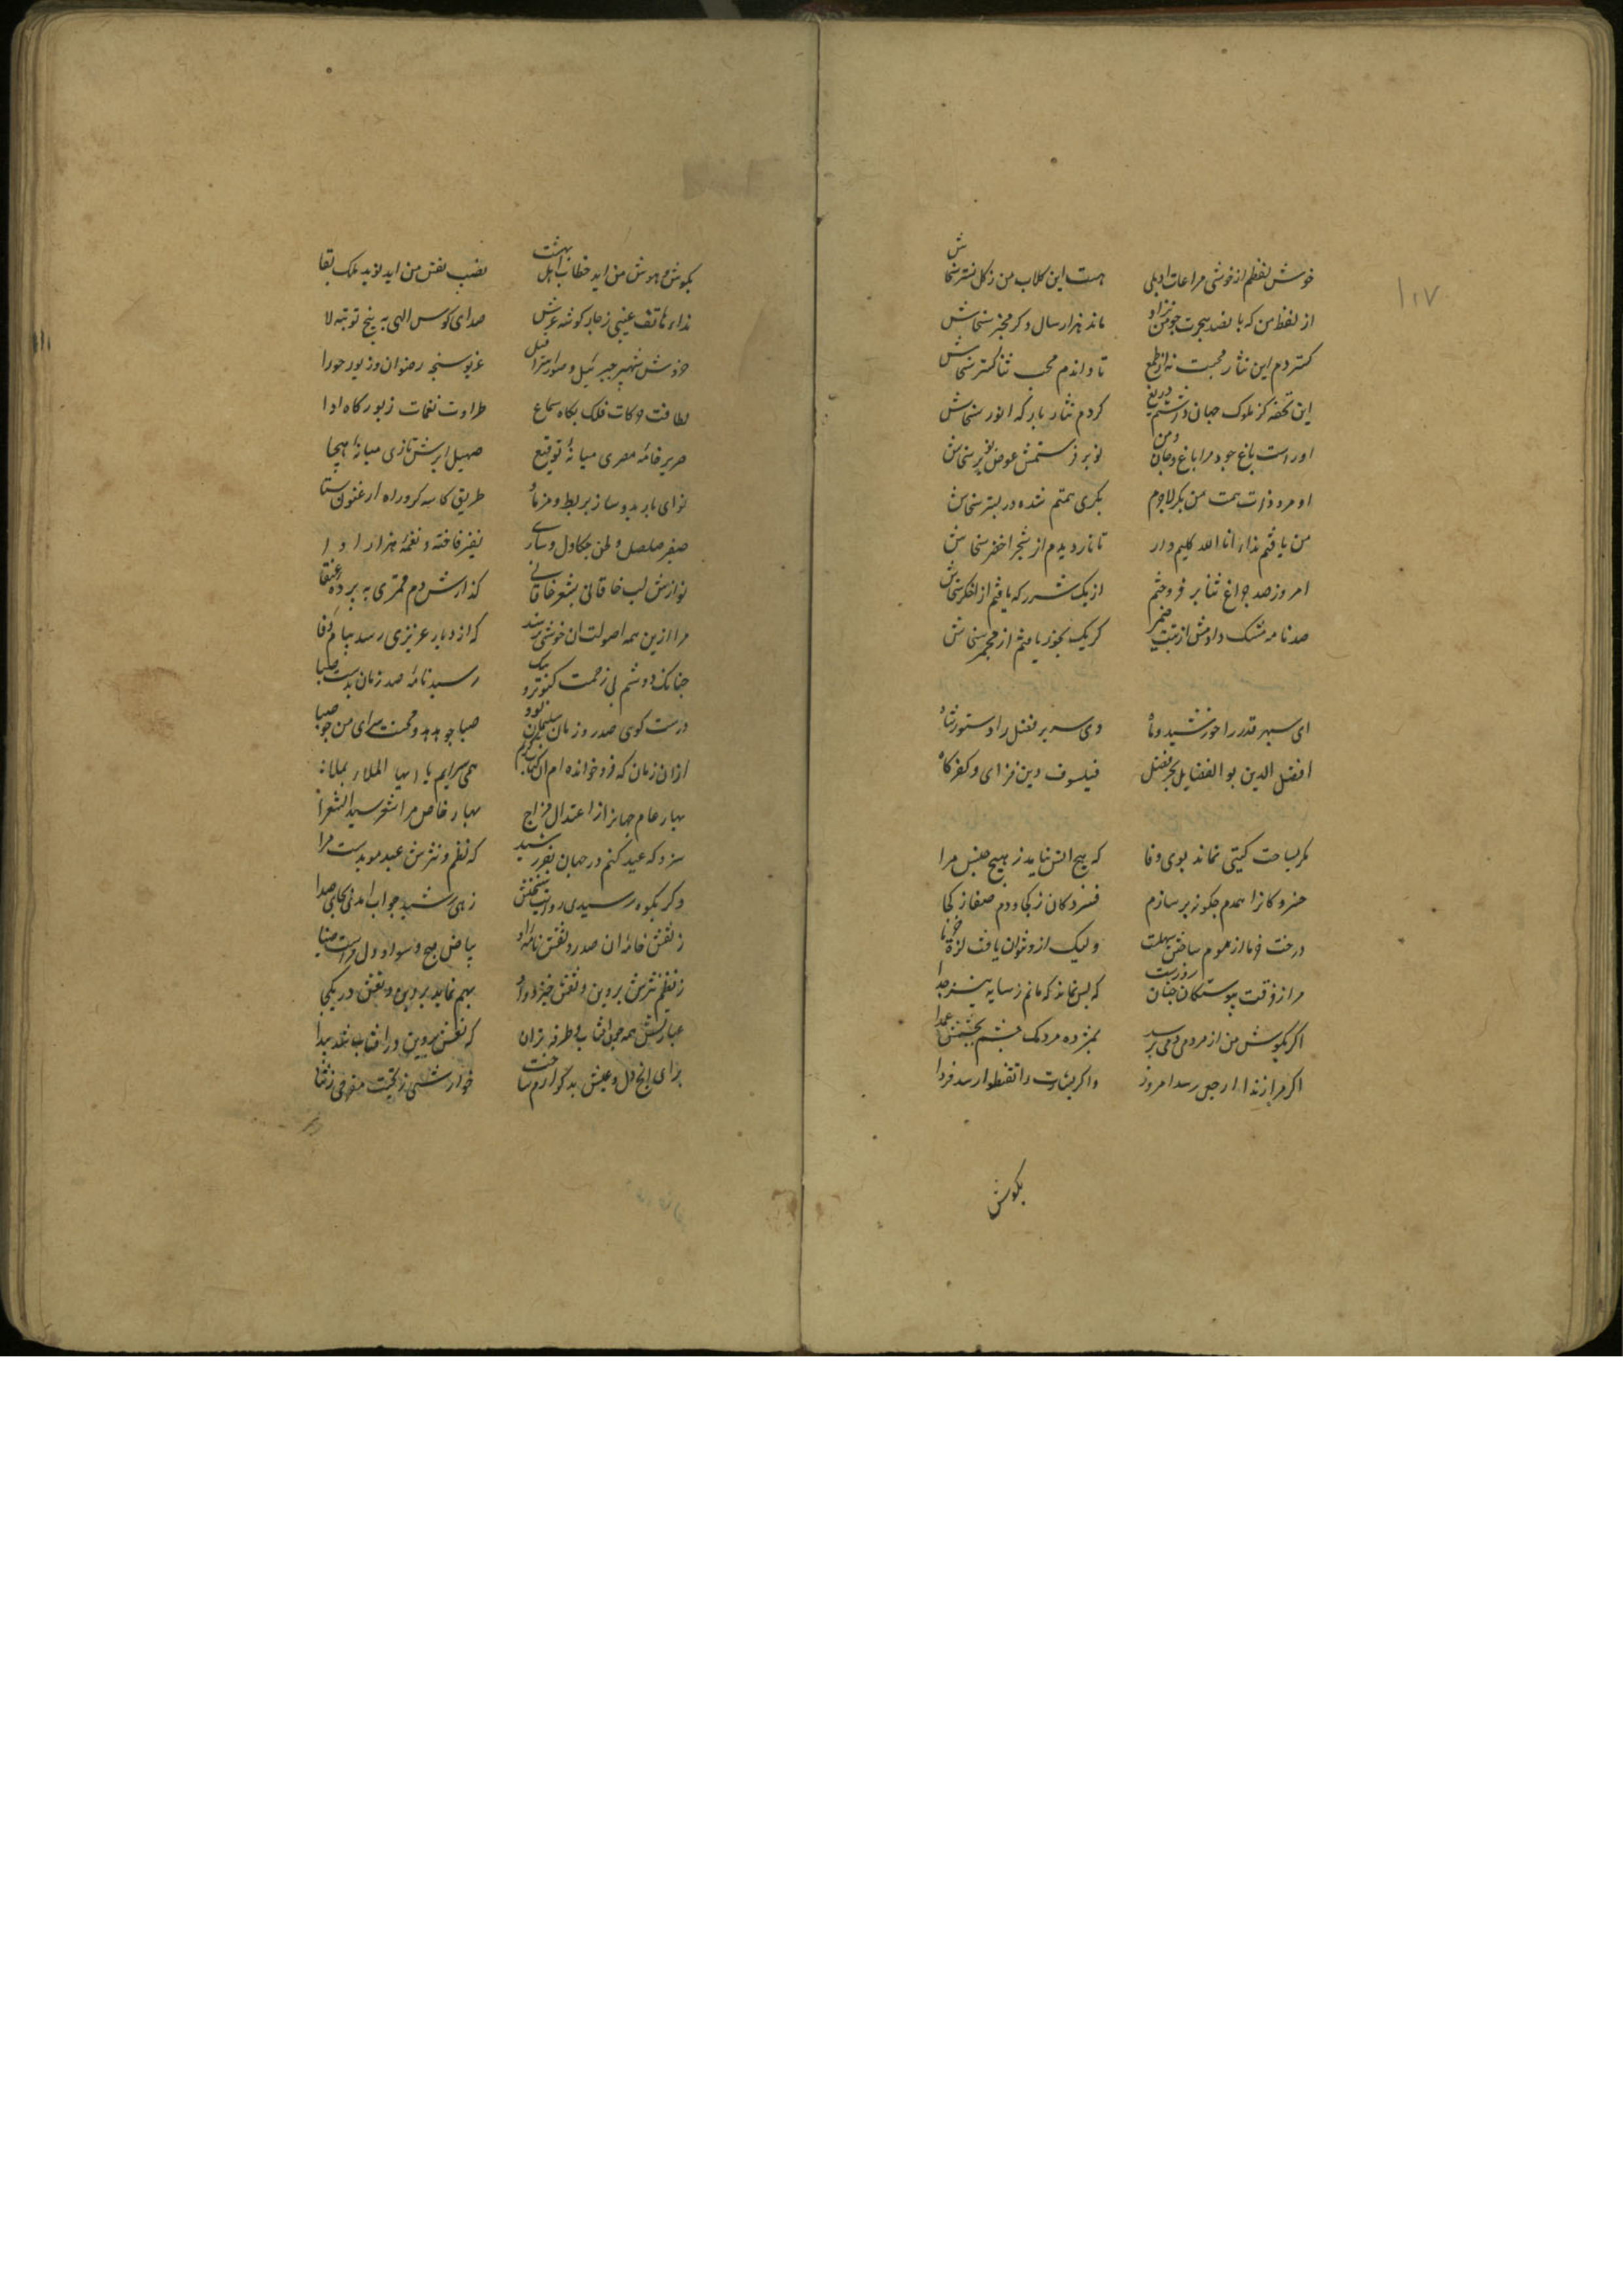 ۱۱۷
خوش لفظم از خوشی مراعات او بلی هست این گلاب من ز گل نستر سخاش
از لفظ من که پانصد هجرت چو من نزاد ماند هزار سال دگر مخبر سخاش
گستردم این نثار محبت نه از طمع تا داندم محب ثنا گستر سخاش
این تحفه کز ملوک جهان داشتم دریغ کردم نثار بارگه انور سخاش
او راست باغ جود و مرا باغ جان و من نوبر فرستمش عوض نوبر سخاش
او مرد ذات همت من بکر لاجرم بکری همتم شده در بستر سخاش
من یافتم ندای انا الله کلیم وار تا نار دیدم از شجر اخضر سخاش
امروز صد چراغ ثنا بر فروختم از یک شرر که یافتم از اخگر سخاش
صد نامه مشک دادمش از تبت ضمیر گر یک بخور یافتم از مجمر سخاش
ای سپهر قدر را خورشید و ماه وی سریر فضل را دستور و شاه
افضل الدین بو الفضایل بحر فضل فیلسوف دین فزای و کفر کاه
مگر بساحت گیتی نماند بوی وفا که هیچ انس نیاید ز هیچ جنس مرا
فسردگان را همدم چگونه بر سازم فسردگان ز کجا و دم صفا ز کجا
درخت خرما از موم ساختن سهلست ولیک ازو نتوان یافت لذة خرما
مرا ز فرقت پیوستگان چنان روزیست که بس نماند که مانم ز سایه نیز جدا
اگر بگوش من از مردمی دمی برسد بمژده مردمک چشم بخشمش عمدا
اگر مرا ندا ارجعی رسد امروز و اگر بشارت لا تقنطوا رسد فردا
بگوش
بگوش هوش من آید خطاب اهل بهشت نصیب نفس من آید نوید ملک بقا
نداء هاتف غیبی ز چار گوشه عرش صدای کوس الهی به پنج نوبه لا
خروش شهپر جبریل و صور اسرافیل غریو سبحه رضوان و زیور حورا
لطافت حرکات فلک بگاه سماع طراوت نغمات زبور گاه ادا
صریر خامه مصری میانه توقیع صهیل ابرش تازی میانه هیجا
نوای باربد و ساز بربط و مزمار طریق کاسه گر و راه ارغنون و ستا
صفیر صلصل و لحن چکاوک و ساری نفیر فاخته و نغمه هزار آوا
نوازش لب خاقانی بشعر خاقانی گذارش دم قمری به پرده عنقا
مرا ازین همه اصوات آن خوشی نرسد که از دیار عزیزی رسد پیام وفا
چنانک دوشم بی زحمت کبوتر و پیک رسید نامه صدر زمان بدست صبا
درست گوی صدر زمان سلیمان بود صبا چو هدهد و محنت سرای من چو سبا
از آن زمان که فرو خوانده ام آن کتاب کریم همی سرایم یا ایها الملا بملا
بهار عام جهانرا از اعتدال مزاج بهار خاص مرا شعر سید الشعرا
سزد که عید کنم در جهان بفر رشید که نظم و نثرش عید مؤیدست مرا
وگر بکوه رسیدی روایت سخنش زهی رشید جواب آمدی بجای صدا
ز نقش خامه آن صدر و نقش نامه او بیاض صبح و سواد دل مراست ضیا
ز نظم و نثرش پروین و نعش خیزد و او بهم نماید پروین و نعش در یک جا
عبارتش همه چون آفتاب و طرفه تر آن که نعش و پروین در آفتاب شد پیدا
برای رنج دل و عیش بد گوارم ساخت جوارشی ز تحیت مفرحی ز ثنا